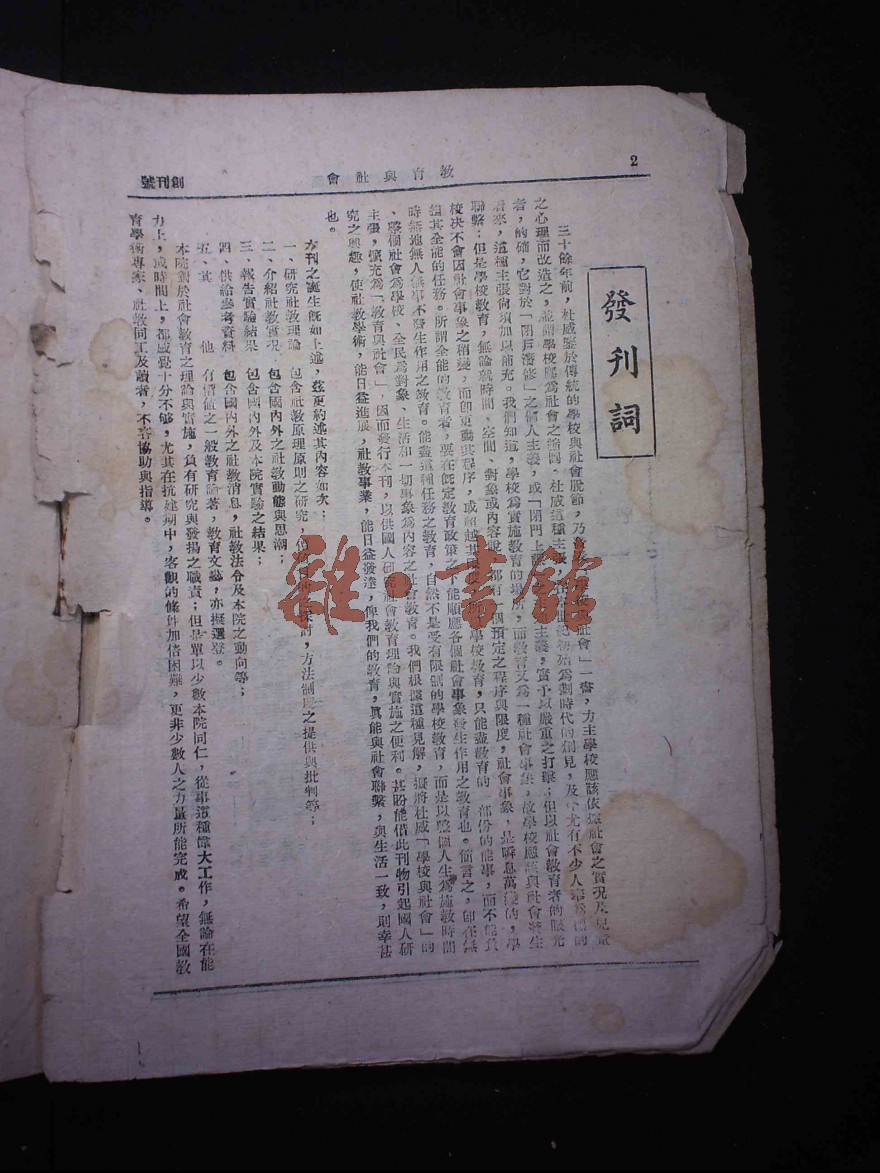 2
教育與社會
創刊號
發刊詞
三十餘年前，杜威鑒於傳統的學校與社會脫節，乃 社會」一書，力主學校應該依據社會之實況及兒童
之心理而改造之，並謂學校應為社會之縮圖。杜威這種主張，在 為劃時代的創見，及今尤有不少人 的
者，的確，它對於「閉戶潛修」之個人主義，或「閉門 主義，實予以嚴重之打擊；但以社會教育者的眼光
看來，這種主張尚須加以補充。我們知道，學校為實施教育的場所，而教育又為一種社會事象，故學校應該與社會發生
聯繫；但是學校教育，無論就時間、空間、對象或內容說，都有一個預定之程序與限度，社會事象，是瞬息萬變的，學
校决不會因社會事象之稍變，而即更動其程序，或超越其限度，所以學校教育，只能盡教育的一部份的能事，而不能負
擔其全能的任務。所謂全能的教育者，要在旣定教育政策之下能順應各個社會事象發生作用之教育也。簡言之，卽在無
時無地無人無事不發生作用之教育。能盡這種任務之教育，自然不是受有限制的學校教育，而是以整個人生為施教時間
、整個社會為學校、全民為對象、生活和一切事象為內容之社會教育。我們根據這種見解，擬將杜威「學校與社會」的
主張，擴充為「教育與社會」，因而發行本刊，以供國人研究社會教育理論與實施之便利。甚盼能借此刊物引起國人研
究之興趣，使社教學術，能日益進展，社教事業，能日益發達，俾我們的教育，眞能與社會聯繫，與生活一致，則幸甚
也。
本刊之誕生旣如上述，茲更約述其內容如次：
一、研究社教理論 包含社教原理原則之研究， 探討，方法制度之提供與批判等；
二、介紹社教實況 包含國內外之社教動態與思潮；
三、報告實驗結果 包含國內外及本院實驗之結果；
四、供給參考資料 包含國內外之社教消息，社教法令及本院之動向等；
五、其 他 有價值之一般教育論著，教育文藝，亦擬選登。
本院對於社會教育之理論與實施，負有研究與發揚之職責；但是單以少數本院同仁，從事這種偉大工作，無論在能
力上，或時間上，都感覺十分不够，尤其在抗建期中，客觀的條件加倍困難，更非少數人之力量所能完成。希望全國教
育學術專家、社教同工及讀者，不吝協助與指導。
雜·書館